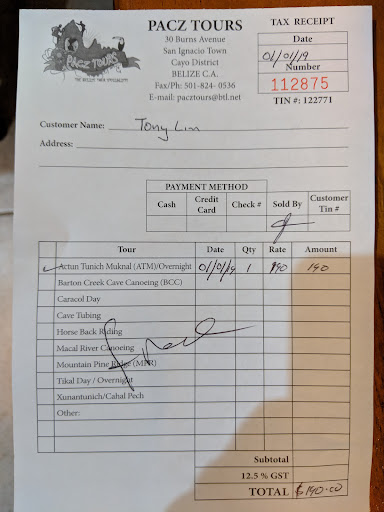 PACZ TOURS
THE BELIZE TOUR SPECIALISTS
PACZ TOURS
30 Burns Avenue
San Ignacio Town
Cayo District
BELIZE C.A.
Fax/Ph: 501-824- 0536
E-mail: pacztours@btl.net
TAX RECEIPT
Date
01/01/19
Number
112875
TIN #: 122771
Customer Name: Tony Lin
Address:
PAYMENT METHOD
Cash Credit Card Check # Sold By Customer Tin #
Tour Date Qty Rate Amount
Actun Tunich Muknal (ATM)/Overnight 01/01/19 1 190 190
Barton Creek Cave Canoeing (BCC)
Caracol Day
Cave Tubing
Horse Back Riding
Macal River Canoeing
Mountain Pine Ridge (MPR)
Tikal Day / Overnight
Xunantunich/Cahal Pech
Other:
Subtotal
12.5 % GST
TOTAL $190.00